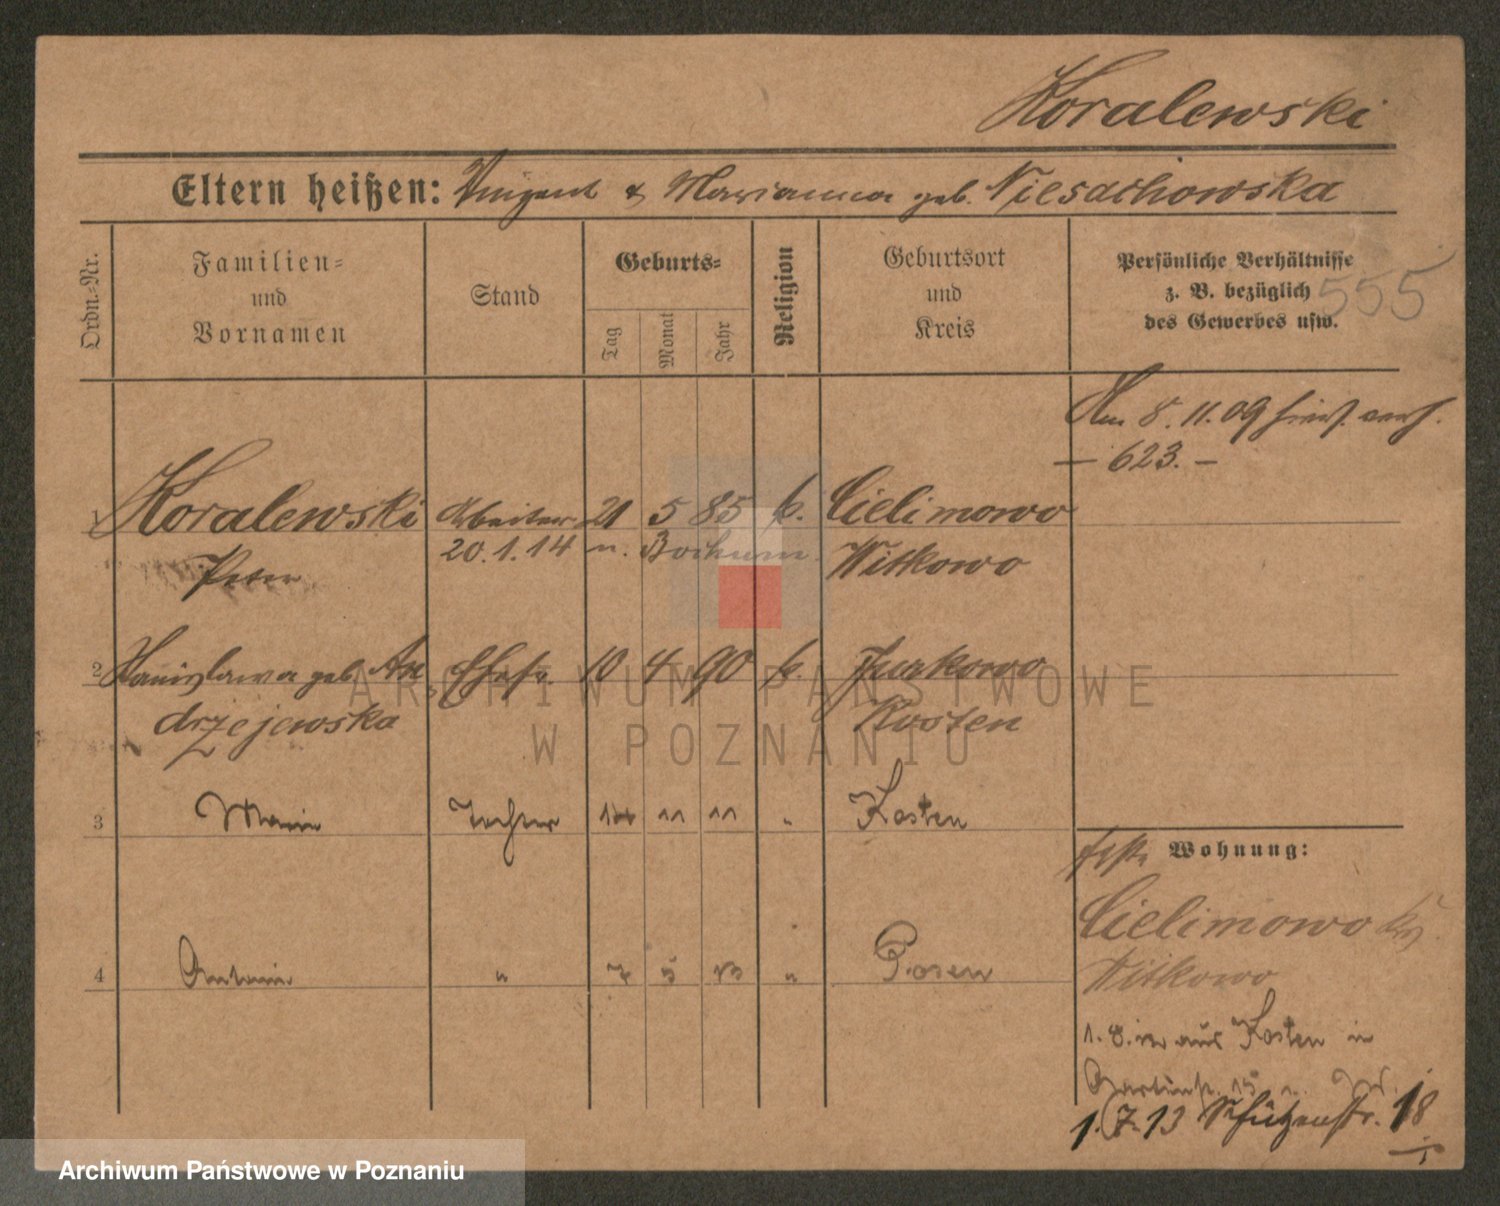 Koralewski
Eltern heißen: Vinzent & Marianna geb. Niesachowska
Ordn.-Nr.
Familien- und Vornamen
Stand
Geburts-
Tag
Monat
Jahr
Religion
Geburtsort und Kreis
Persönliche Verhältnisse
z. B. bezüglich
des Gewerbes usw.
555
Am 8. 11. 09
– 623. –
1 Koralewski Arbeiter 21 5 85 k. Cielimowo
Peter 20.1.14 n. Bochum. Witkowo
2 Stanislawa geb. An Ehefr. 10 4 90 k. Jurkowo
drzejewska Kosten
3 Marie Tochter 14 11 11 " Kosten
4 Antonie " 7 5 13 " Posen
Wohnung:
Cielimowo Kr.
Witkowo
1. 8. 12 aus Kosten in
15
1. 7. 13 Schützenstr. 18
ARCHIWUM PAŃSTWOWE
W POZNANIU
Archiwum Państwowe w Poznaniu